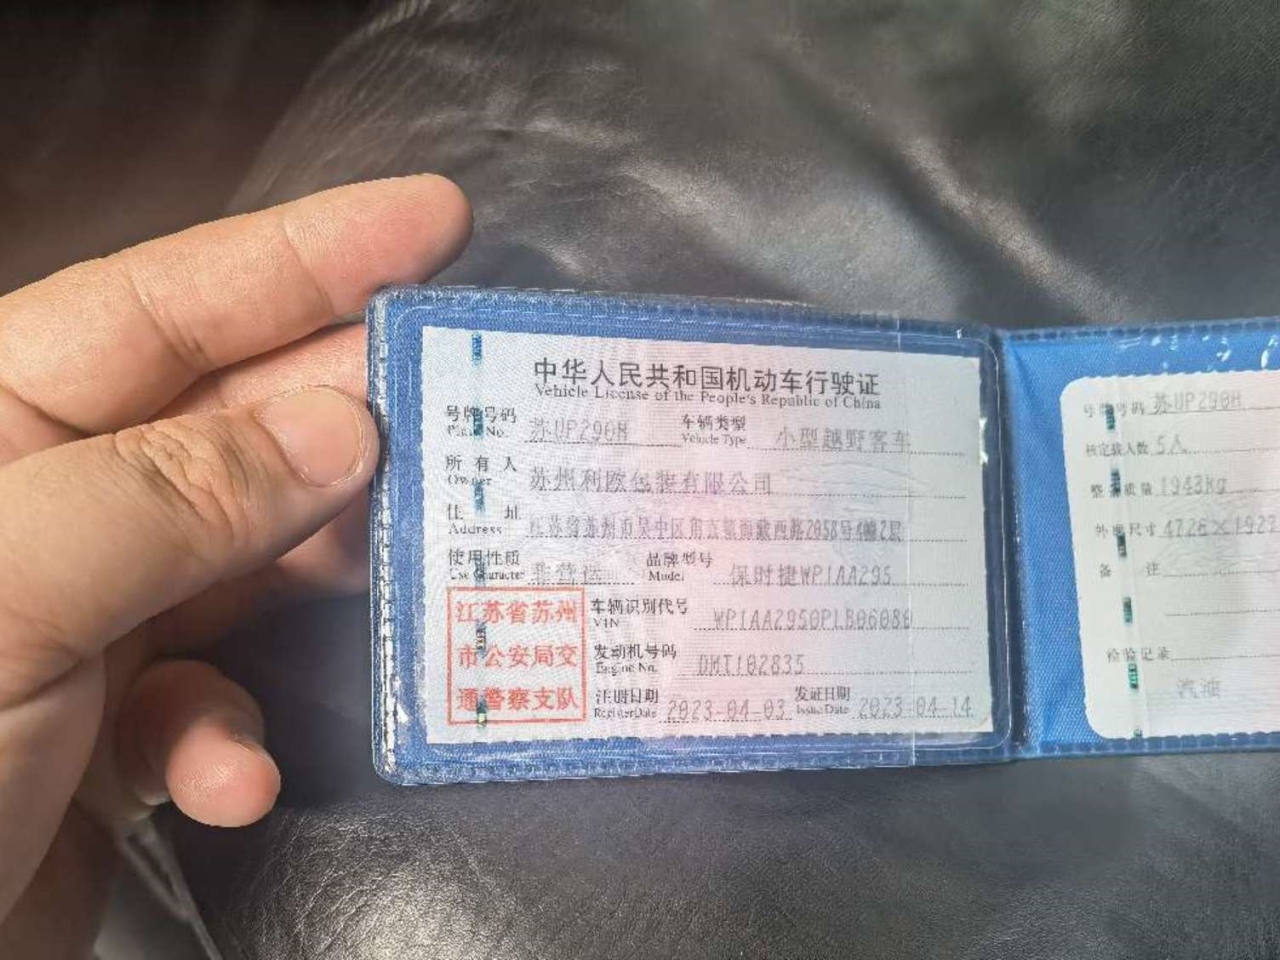 中华人民共和国机动车行驶证
Vehicle License of the People's Republic of China
号牌号码 苏UP290H 车辆类型 小型越野客车
Plate No. Vehicle Type
所有人 苏州利欧包装有限公司
Owner
住址 江苏省苏州市吴中区甪直镇海藏西路2058号4幢2层
Address
使用性质 非营运 品牌型号 保时捷WP1AA295
Use Character Model
江苏省苏州
市公安局交
通警察支队
车辆识别代号 WP1AA2950PLB06080
VIN
发动机号码 DMT102835
Engine No.
注册日期 2023-04-03 发证日期 2023-04-14
Register Date Issue Date
号牌号码 苏UP290H
核定载人数 5人
整备质量 1943kg
外廓尺寸 4726×1927
备注
检验记录
汽油